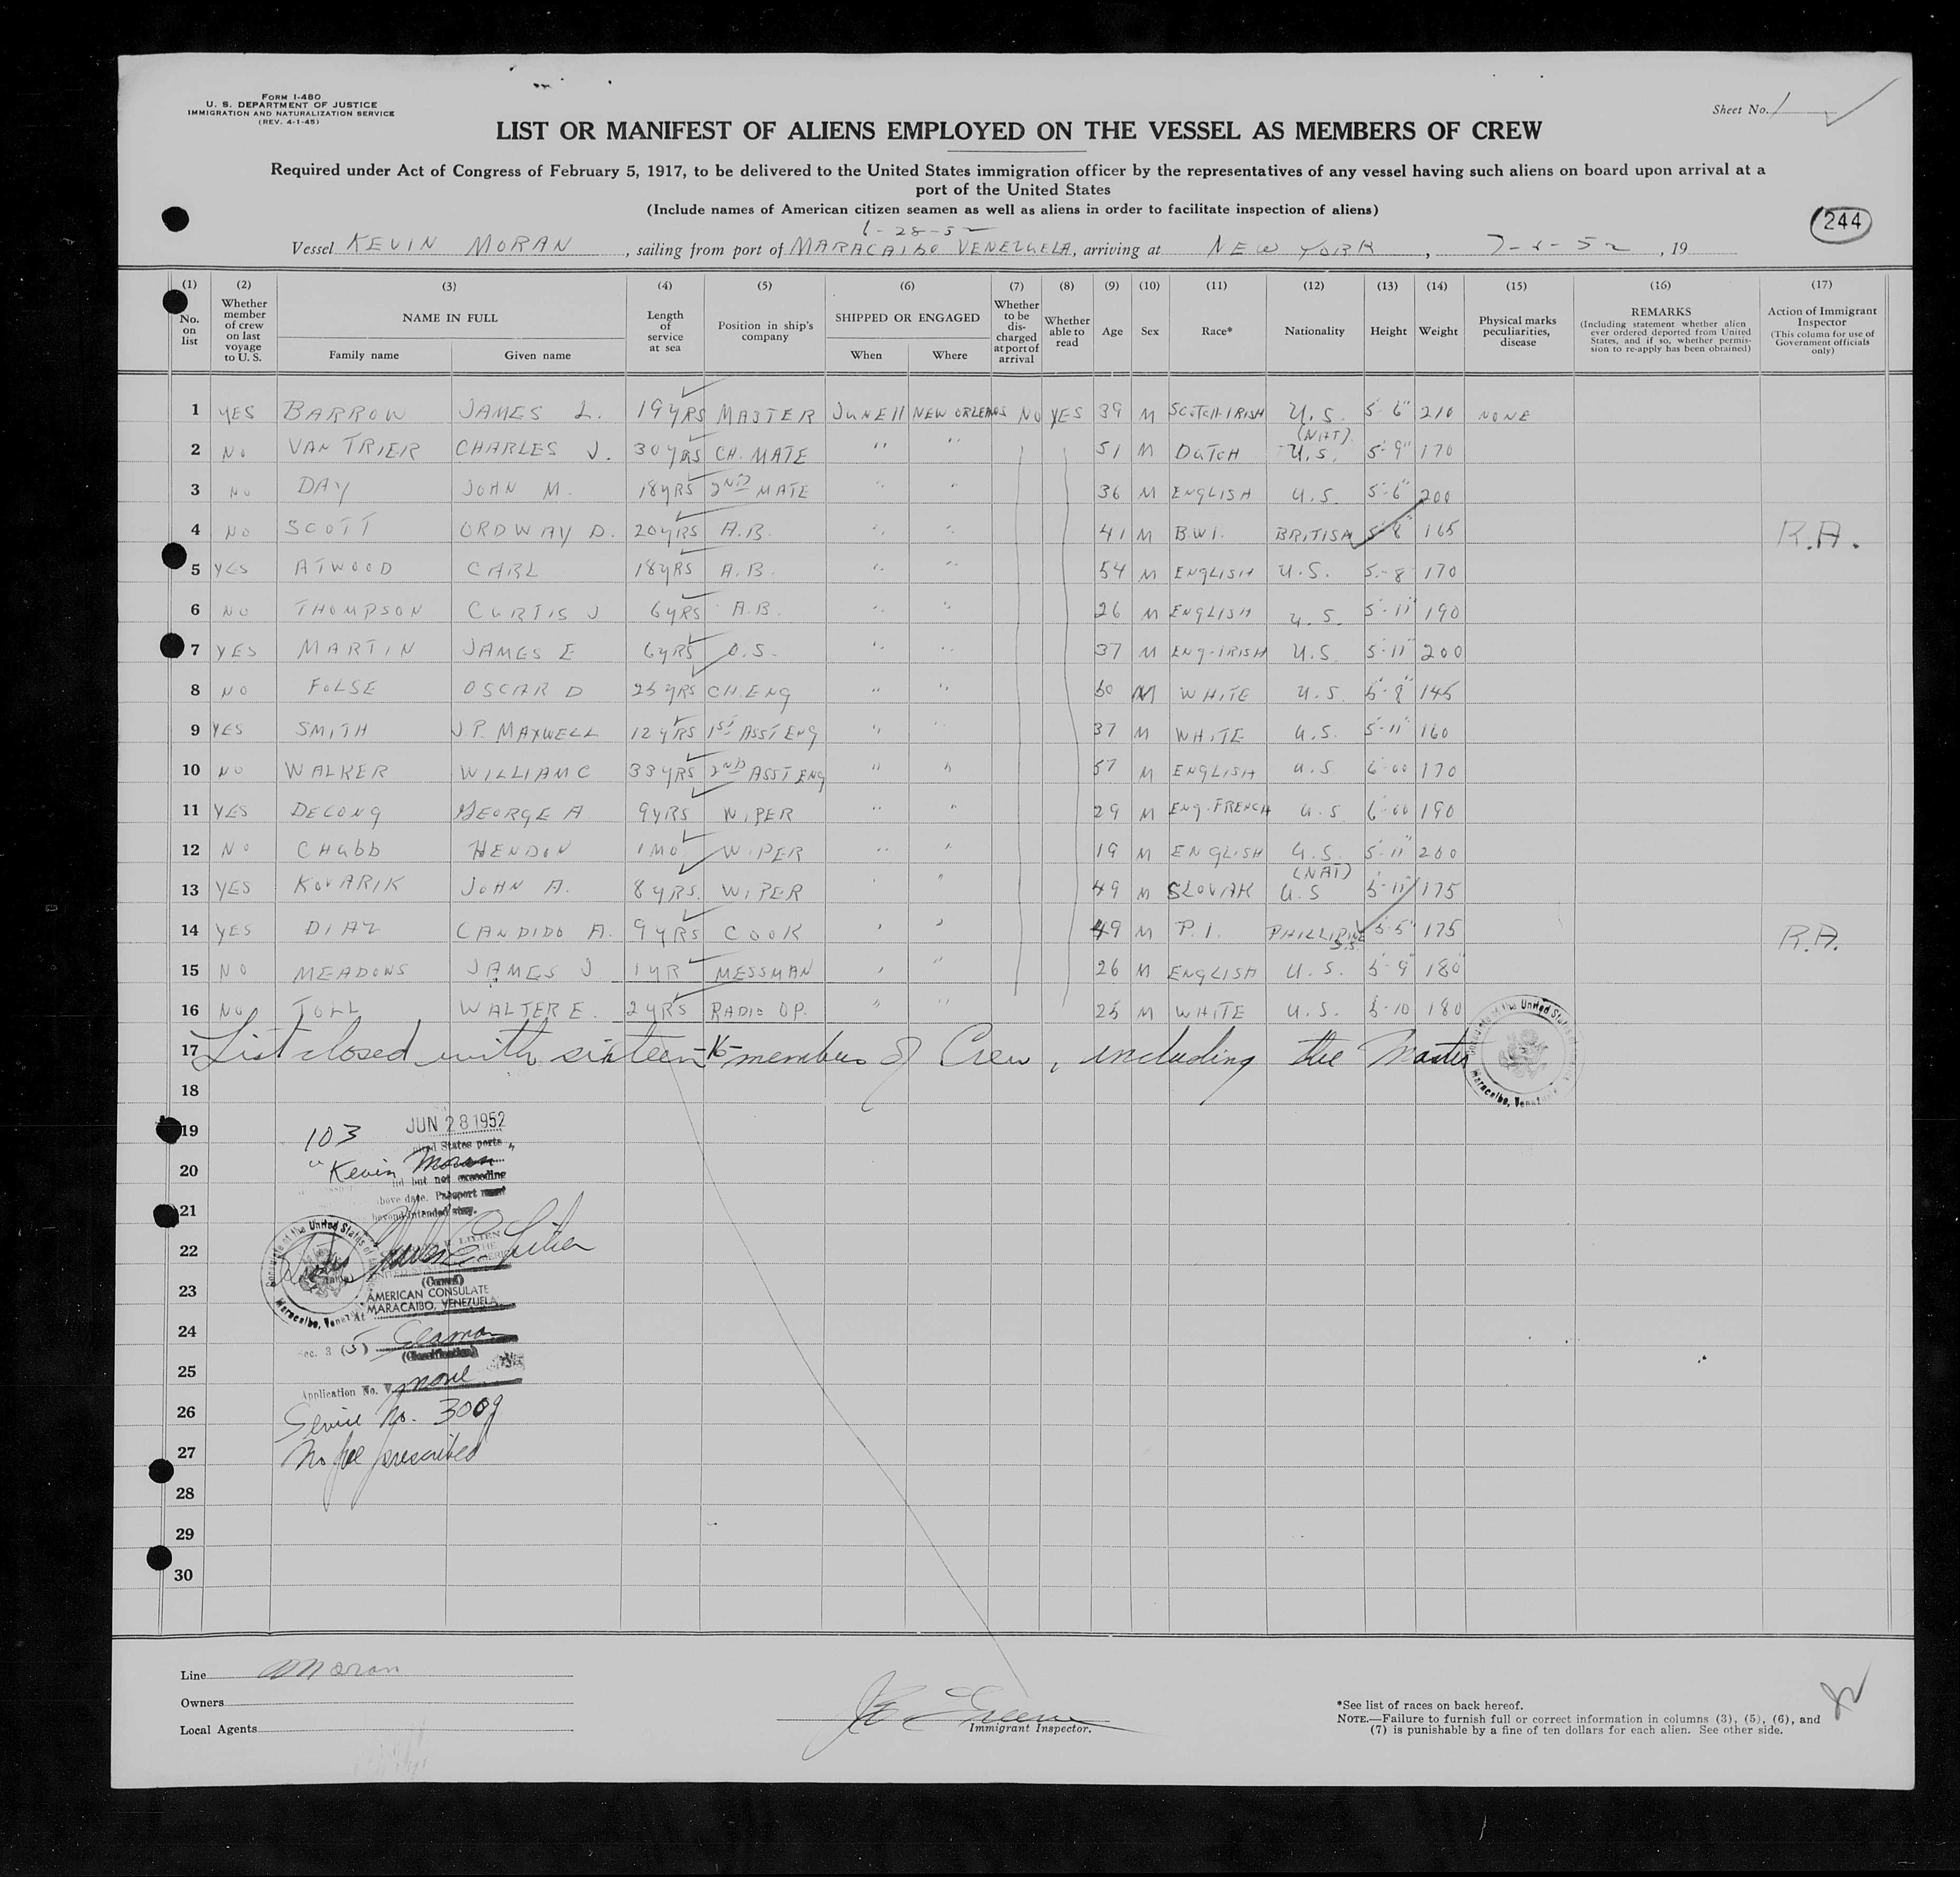 FORM I-480
U. S. DEPARTMENT OF JUSTICE
IMMIGRATION AND NATURALIZATION SERVICE
(REV. 4-1-45)
Sheet No. 1
LIST OR MANIFEST OF ALIENS EMPLOYED ON THE VESSEL AS MEMBERS OF CREW
Required under Act of Congress of February 5, 1917, to be delivered to the United States immigration officer by the representatives of any vessel having such aliens on board upon arrival at a
port of the United States
(Include names of American citizen seamen as well as aliens in order to facilitate inspection of aliens)
244
6-28-52
Vessel KEVIN MORAN, sailing from port of MARACAIBO VENEZUELA, arriving at NEW YORK, , 19
(1) No. on list
(2) Whether member of crew on last voyage to U. S.
(3) NAME IN FULL Family name Given name
(4) Length of service at sea
(5) Position in ship's company
(6) SHIPPED OR ENGAGED When Where
(7) Whether to be discharged at port of arrival
(8) Whether able to read
(9) Age
(10) Sex
(11) Race*
(12) Nationality
(13) Height
(14) Weight
(15) Physical marks peculiarities, disease
(16) REMARKS (Including statement whether alien ever ordered deported from United States, and if so, whether permission to re-apply has been obtained)
(17) Action of Immigrant Inspector (This column for use of Government officials only)
1 YES BARROW JAMES L. 19 YRS MASTER JUNE 11 NEW ORLEANS NO YES 39 M SCOTCH-IRISH U.S. 5'6" 210 NONE
2 NO VAN TRIER CHARLES J. 30 YRS CH. MATE " " 51 M DUTCH (NAT) U.S. 5'-9" 170
3 NO DAY JOHN M. 18 YRS 2ND MATE " " 36 M ENGLISH U.S. 5'-6" 200
4 NO SCOTT ORDWAY D. 20 YRS A.B. " " 41 M B.W.I. BRITISH 5'-8" 165 R.A.
5 YES ATWOOD CARL 18 YRS A.B. " " 54 M ENGLISH U.S. 5'-8 170
6 NO THOMPSON CURTIS J 6 YRS A.B. " " 26 M ENGLISH U.S. 5'-11" 190
7 YES MARTIN JAMES E 6 YRS O.S. " " 37 M ENG-IRISH U.S. 5'-11" 200
8 NO FOLSE OSCAR D 25 YRS CH. ENG " " 60 M WHITE U.S. 5'-8" 145
9 YES SMITH J.P. MAXWELL 12 YRS 1ST ASST ENG " " 37 M WHITE U.S. 5'-11" 160
10 NO WALKER WILLIAM C 33 YRS 2ND ASST ENG " " 57 M ENGLISH U.S 6'-00 170
11 YES DELONG GEORGE A 9 YRS WIPER " " 29 M ENG-FRENCH U.S. 6-00 190
12 NO CHUBB HENDON 1 MO WIPER " " 19 M ENGLISH U.S. 5'-11" 200
13 YES KOVARIK JOHN A. 8 YRS. WIPER " " 49 M SLOVAK (NAT) U.S 5'-11" 175
14 YES DIAZ CANDIDO A. 9 YRS COOK " " 49 M P.I. 5'5" 175 R.A.
15 NO MEADOWS JAMES J. 1 YR MESSMAN " " 26 M ENGLISH U.S. 5'-9" 180
16 NO TOLL WALTER E. 2 YRS RADIO OP. " " 25 M WHITE U.S. 5-10 180
17 List closed with sixteen-16-members of Crew, including the Master
18
19 103 JUN 28 1952
States ports
20 "Kevin Moran
but not exceeding
above date. Passport must
21 beyond intended stay.
22
23 (Consul)
AMERICAN CONSULATE
MARACAIBO, VENEZUELA
24 Sec. 3 (5) Seaman
(Classification)
25 Application No. V none
26 Service No. 3009
27 No fee prescribed
28
29
30
Consulate of the United States of America
Maracaibo, Venezuela
Consulate of the United States of America
Maracaibo, Venezuela
Line Moran
Owners
Local Agents
Immigrant Inspector.
*See list of races on back hereof.
NOTE.—Failure to furnish full or correct information in columns (3), (5), (6), and
(7) is punishable by a fine of ten dollars for each alien. See other side.